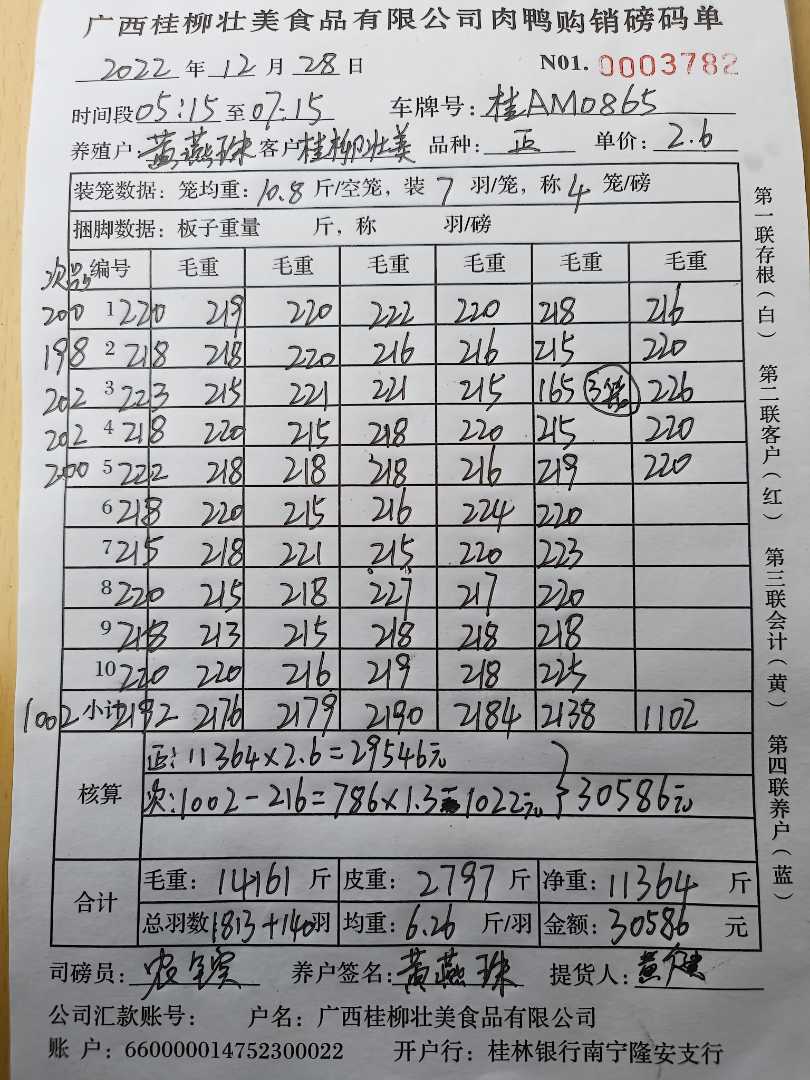 广西桂柳壮美食品有限公司肉鸭购销磅码单
2022 年 12 月 28 日 N01. 0003782
时间段 05:15 至 07:15 车牌号: 桂AM0865
养殖户: 黄燕珠 客户 桂柳壮美 品种: 正 单价: 2.6
装笼数据: 笼均重: 10.8 斤/空笼, 装 7 羽/笼, 称 4 笼/磅
捆脚数据: 板子重量 斤, 称 羽/磅
次品 编号 毛重 毛重 毛重 毛重 毛重 毛重
200 1 220 219 220 222 220 218 216
198 2 218 218 220 216 216 215 220
202 3 223 215 221 221 215 165 3笼 226
202 4 218 220 215 218 220 215 220
200 5 222 218 218 218 216 219 220
6 218 220 215 216 224 220
7 215 218 221 215 220 223
8 220 215 218 227 217 220
9 218 213 215 218 218 218
10 220 220 216 219 218 225
1002 小计 2192 2176 2179 2190 2184 2138 1102
核算
正: 11364×2.6=29546元
次: 1002-216=786×1.3 1022元 } 30586元
合计
毛重: 14161 斤 皮重: 2797 斤 净重: 11364 斤
总羽数 1813+140羽 均重: 6.26 斤/羽 金额: 30586 元
司磅员: 养户签名: 黄燕珠 提货人: 黄健
公司汇款账号: 户名: 广西桂柳壮美食品有限公司
账户: 660000014752300022 开户行: 桂林银行南宁隆安支行
第一联存根(白) 第二联客户(红) 第三联会计(黄) 第四联养户(蓝)